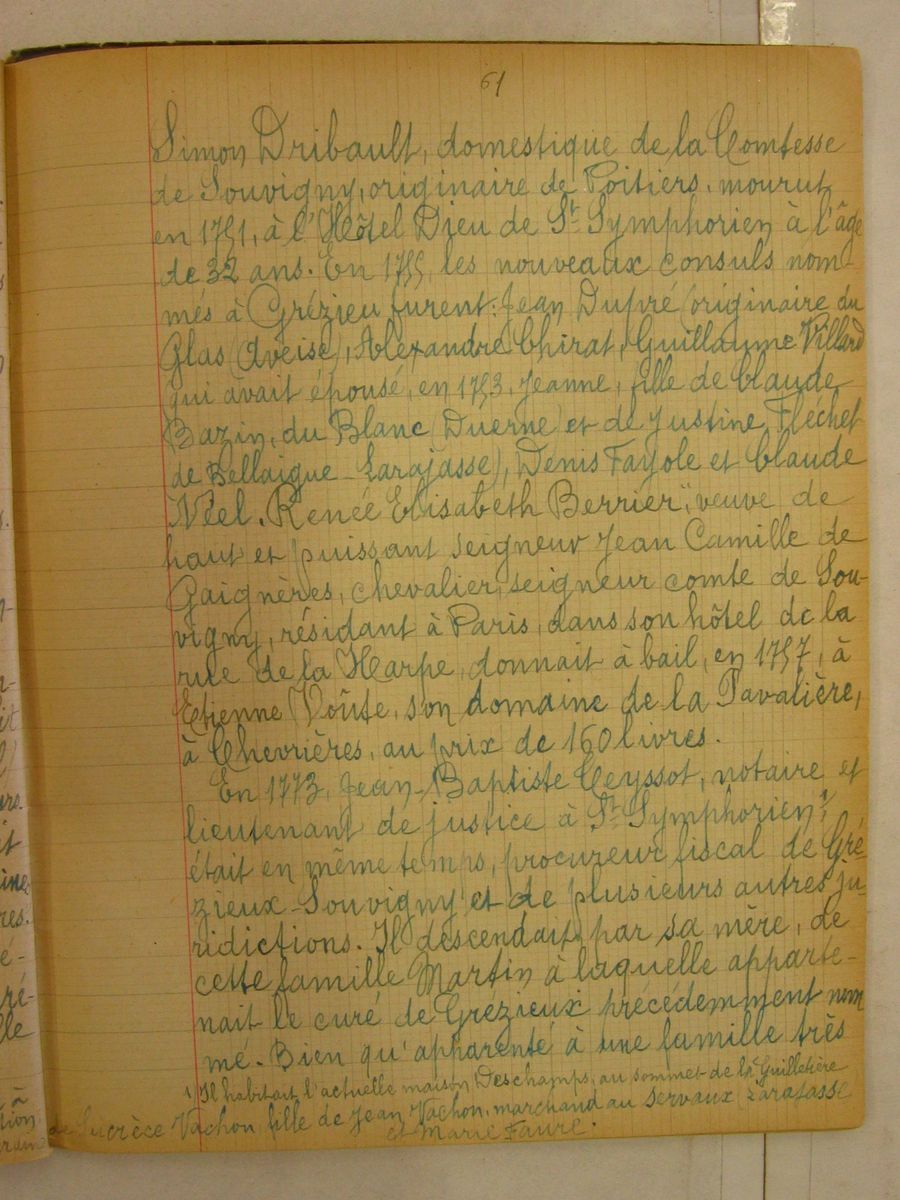 61
Simon Dribault, domestique de la Comtesse
de Souvigny, originaire de Poitiers, mourut
en 1751, à l'Hôtel Dieu de St Symphorien à l'âge
de 32 ans. En 1755, les nouveaux consuls nom-
més à Grézieu furent: Jean Dupré (originaire du
Glas (Aveise), Alexandre Chirat, Guillaume Villard
qui avait épousé, en 1753, Jeanne, fille de Claude
Bazin, du Blanc (Duerne) et de Justine Fléchet
de Bellaigue - Larajasse), Denis Fayole et Claude
Néel. Renée Elisabeth Berrier, veuve de
haut et puissant seigneur Jean Camille de
Gaignères, chevalier, seigneur comte de Sou-
vigny, résidant à Paris, dans son hôtel de la
rue de la Harpe, donnait à bail, en 1757, à
Etienne Voûte, son domaine de la Pavalière,
à Chevrières, au prix de 160 livres.
En 1773, Jean-Baptiste Ceyssot, notaire et
lieutenant de justice à St Symphorien,1
était en même temps, procureur fiscal de Gré-
zieux-Souvigny et de plusieurs autres ju-
ridictions. Il descendait, par sa mère, de
cette famille Martin à laquelle apparte-
nait le curé de Grézieux précédemment nom
mé. Bien qu'apparenté à une famille très
1) Il habitait l'actuelle maison Deschamps, au sommet de la Guilletière
de Lucrèce Vachon fille de Jean Vachon, marchand au Servaux (Larajasse
et Marie Faure.